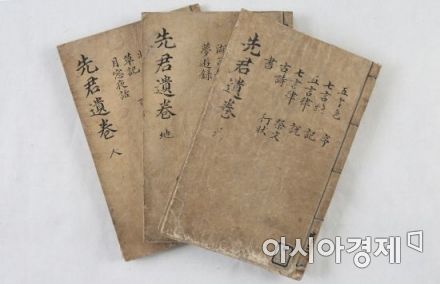 五言絶 序
七言絶 記
五言律 說
七言律 祭文
古詩 行狀
書
先君遺卷
夢遊錄
先君遺卷 地
草記
月窓夜話
先君遺卷 人
아시아경제